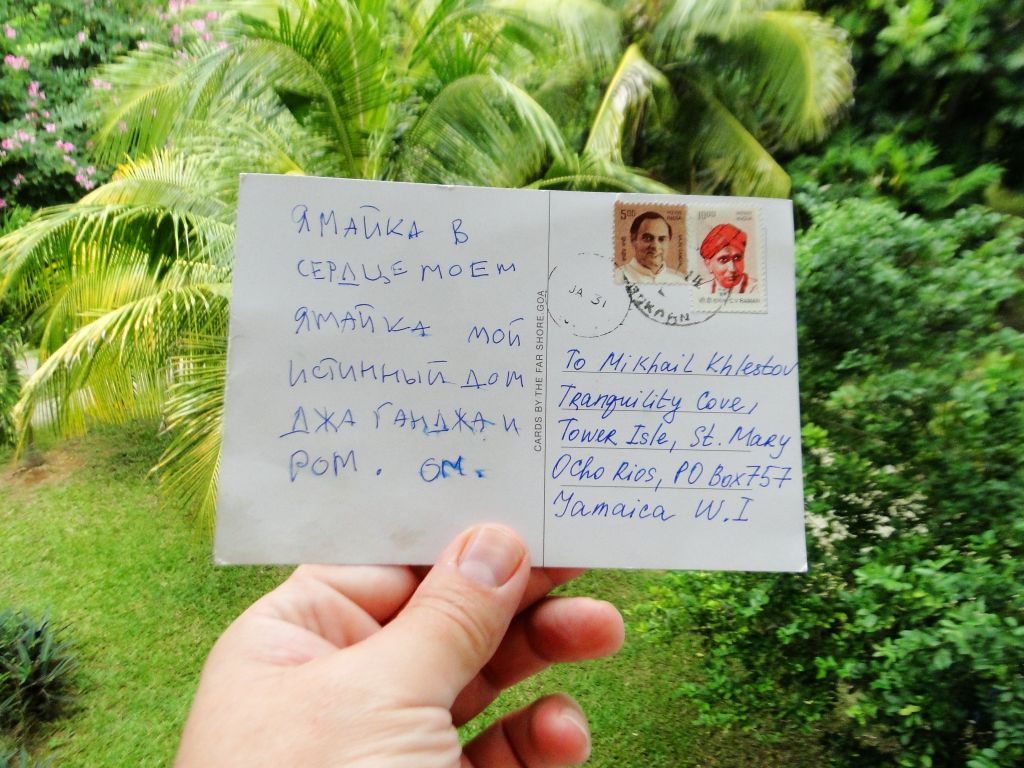 ЯМАЙКА В
СЕРДЦЕ МОЕМ
ЯМАЙКА МОЙ
ИСТИННЫЙ ДОМ
ДЖА ГАНДЖА И
РОМ. ОМ.
CARDS BY THE FAR SHORE.GOA
5.00
INDIA
10.00
INDIA
C V RAMAN
JA 31
To Mikhail Khlestov
Tranquility Cove,
Tower Isle, St. Mary
Ocho Rios, PO Box 757
Jamaica W.I